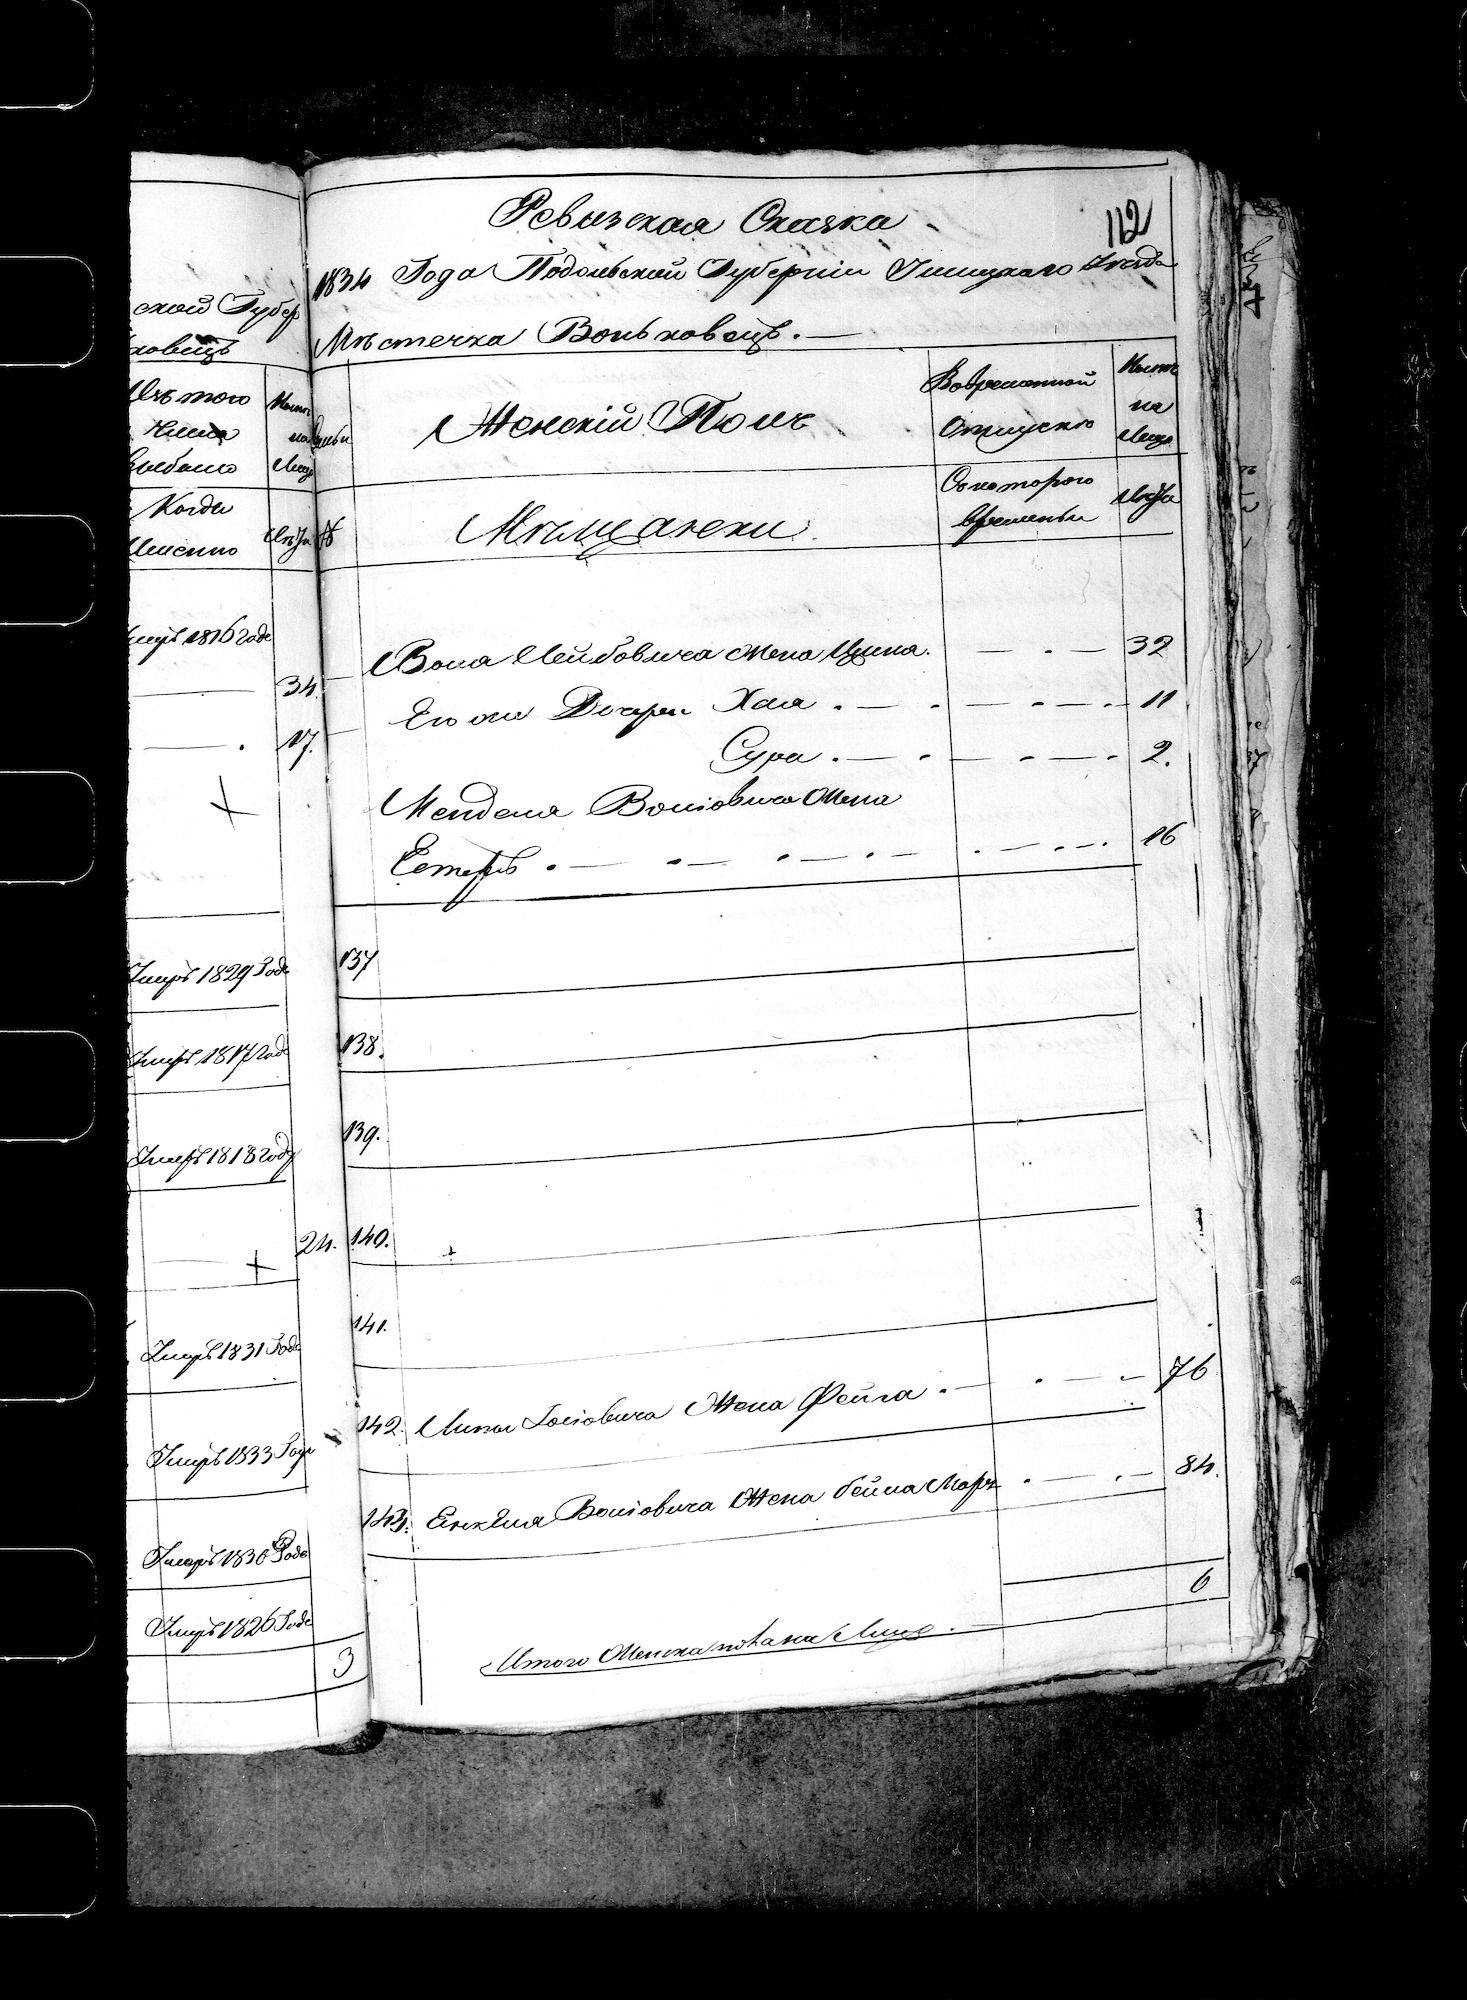 ской Губер
ковецъ
Изъ того
числа
выбыло
Когда
Именно
Нынѣ
на
Лицо
Лѣта
умеръ 1816 Года
34.
17.
Умеръ 1829 Года
Умеръ 1817 Года
Умеръ 1818 Году
24.
Умеръ 1831 Года
Умеръ 1833 Года
Умеръ 1830 Года
Умеръ 1826 Года
3
112
Ревизская Сказка
1834 Года Подольской Губерніи Ушицкаго Уезда
Мѣстечка Воньковецъ.
Женскій Полъ
Вовременной
Отлучкѣ
Нынѣ
на
Лицо
№
Мѣщански
Скоторого
времены
Лѣта
Вола Лейбовича жена Ципа. 32
Его же Дочери Хая 11
Сура 2.
Менделя Воліовича Жена
Естеръ 16
137
138.
139.
140.
141.
142. Липы Іосіовича Жена Фейга 76
143. Янкеля Воліовича Жена бейла Марз 84.
6
Итого Женска пола на Лицо